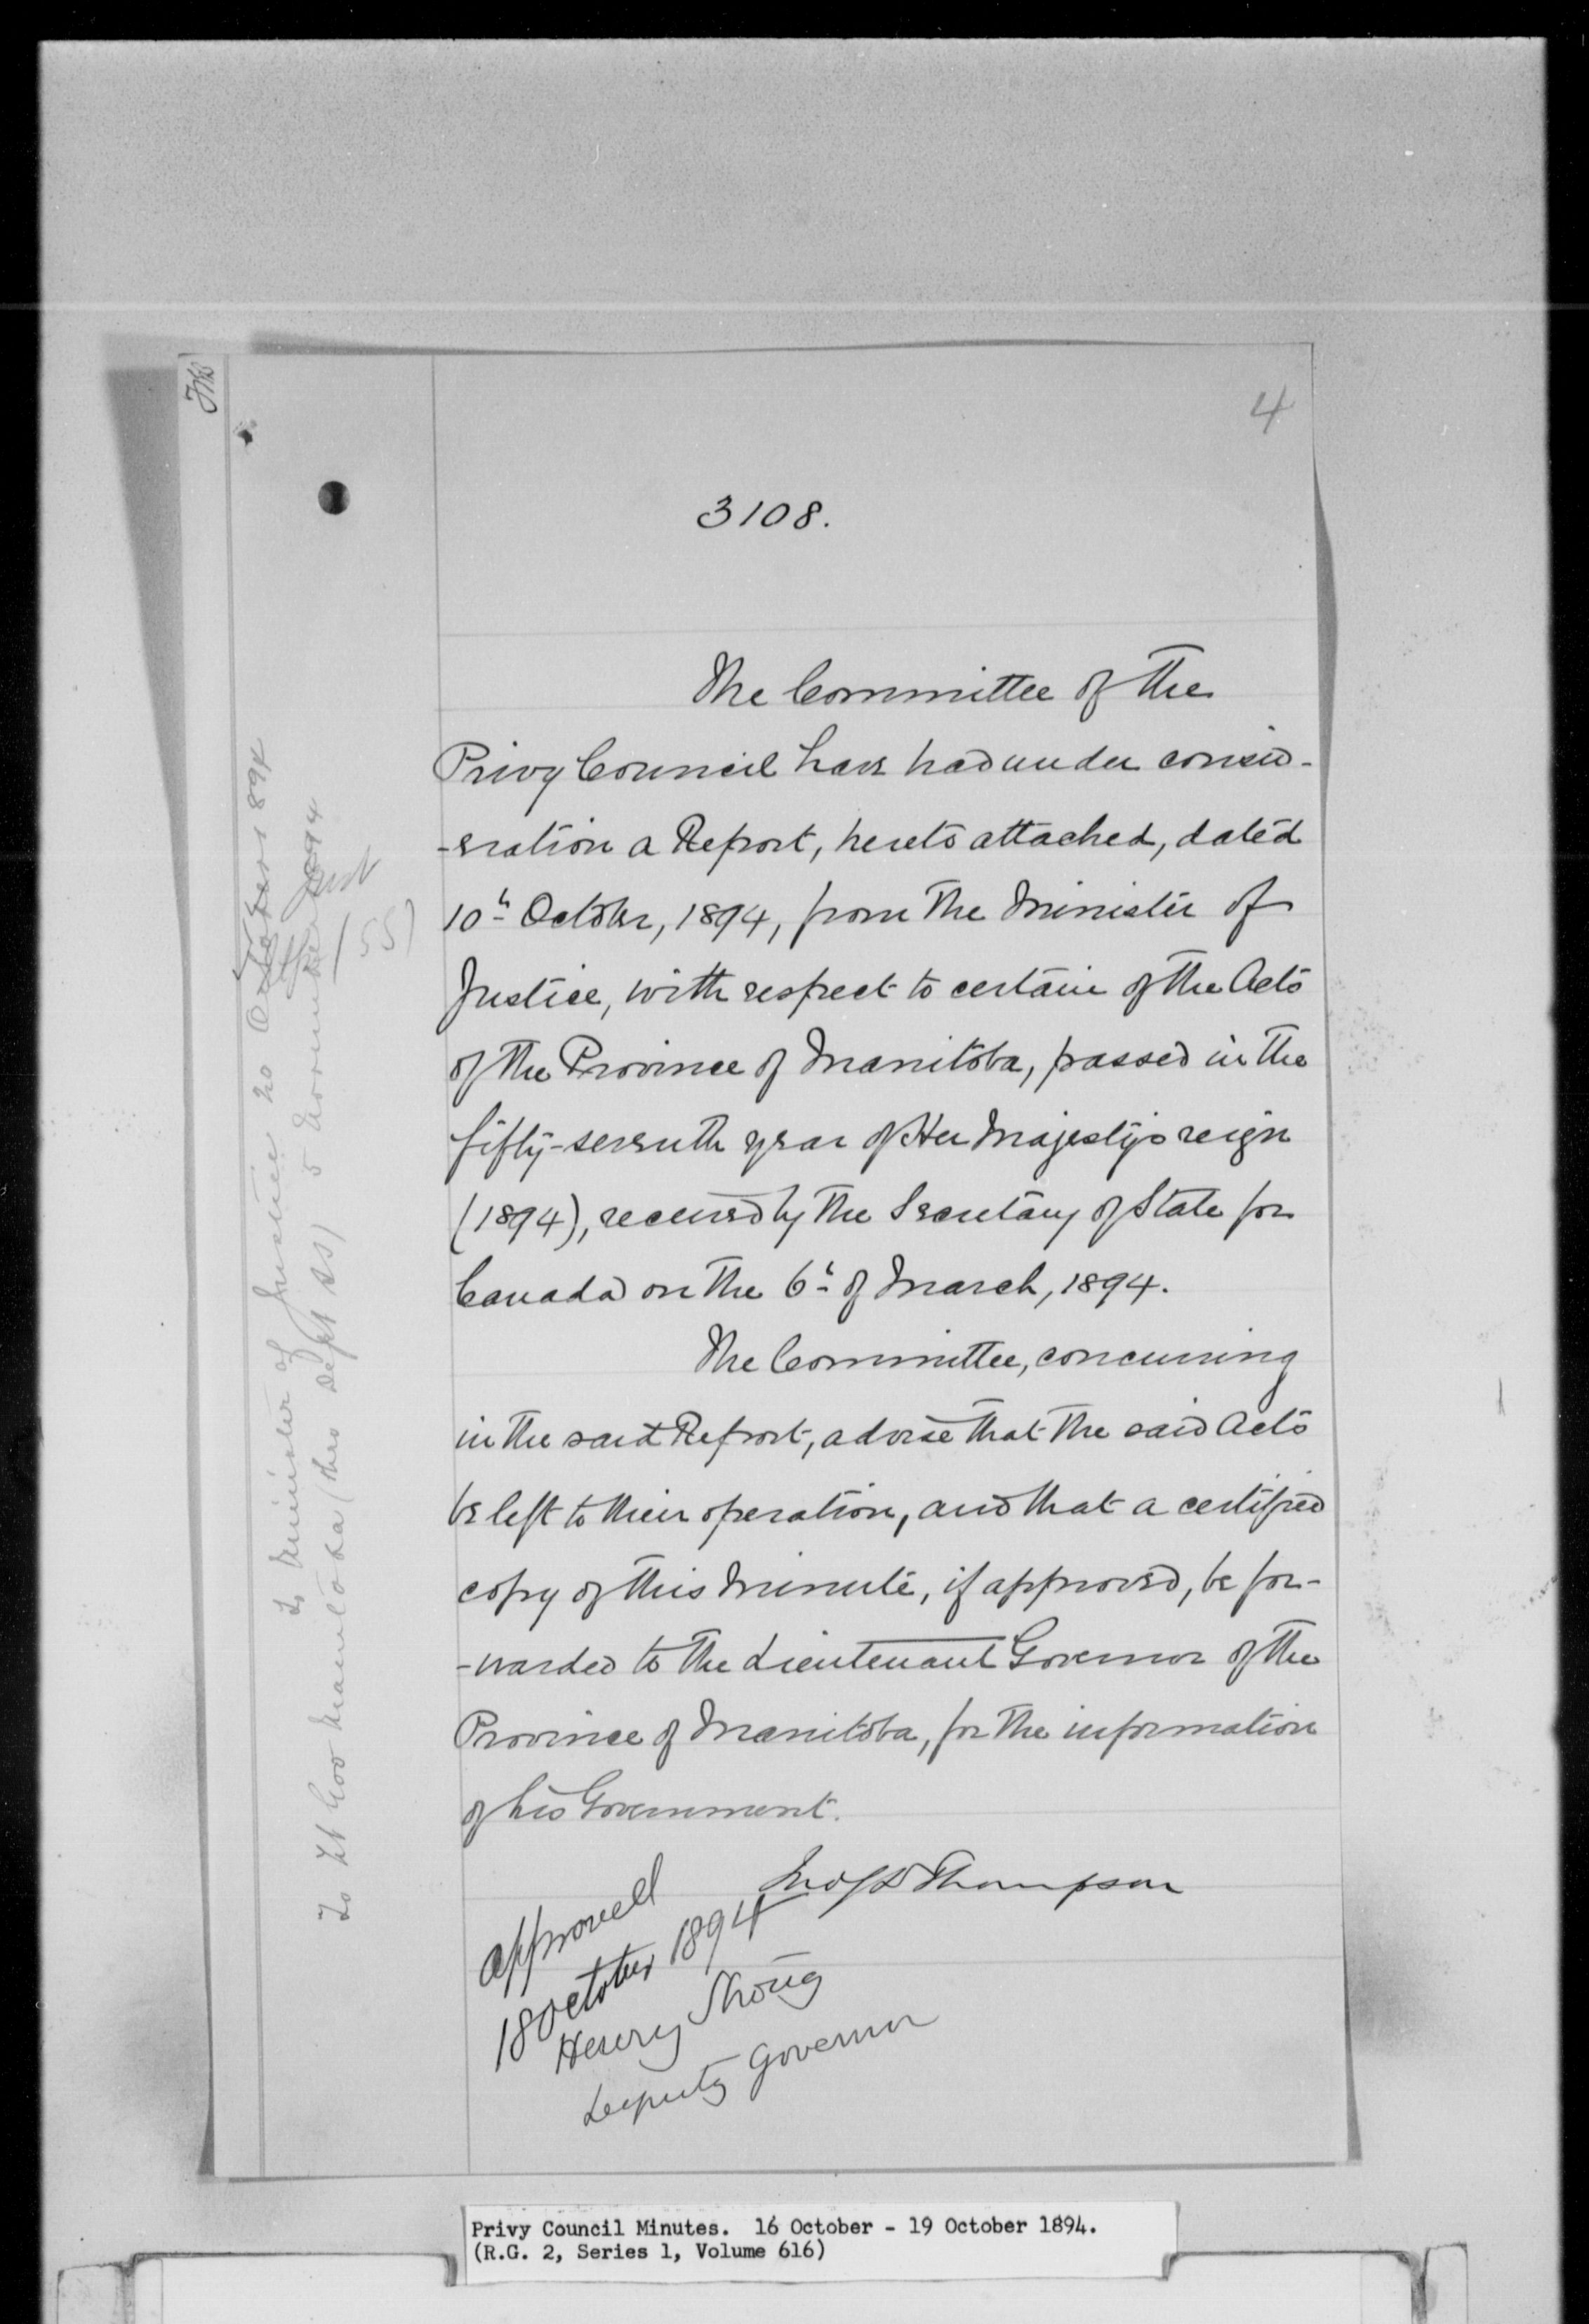 4
3108.
The Committee of the
Privy Council have had under consid-
-eration a Report, hereto attached, dated
10th October, 1894, from the Minister of
Justice, with respect to certain of the Acts
of the Province of Manitoba, passed in the
fifty-seventh year of Her Majesty's reign
(1894), received by the Secretary of State for
Canada on the 6th of March, 1894.
The Committee, concurring
in the said Report, advise that the said Acts
be left to their operation, and that a certified
copy of this Minute, if approved, be for-
-warded to the Lieutenant Governor of the
Province of Manitoba, for the information
of his Government.
Jno S D Thompson
approved
18 October 1894
Henry Strong
Deputy Governor
To Minister of Justice 20 October 1894
To Lt Gov Manitoba (thro Dept SS) 5 November 1894
Privy Council Minutes. 16 October - 19 October 1894.
(R.G. 2, Series 1, Volume 616)